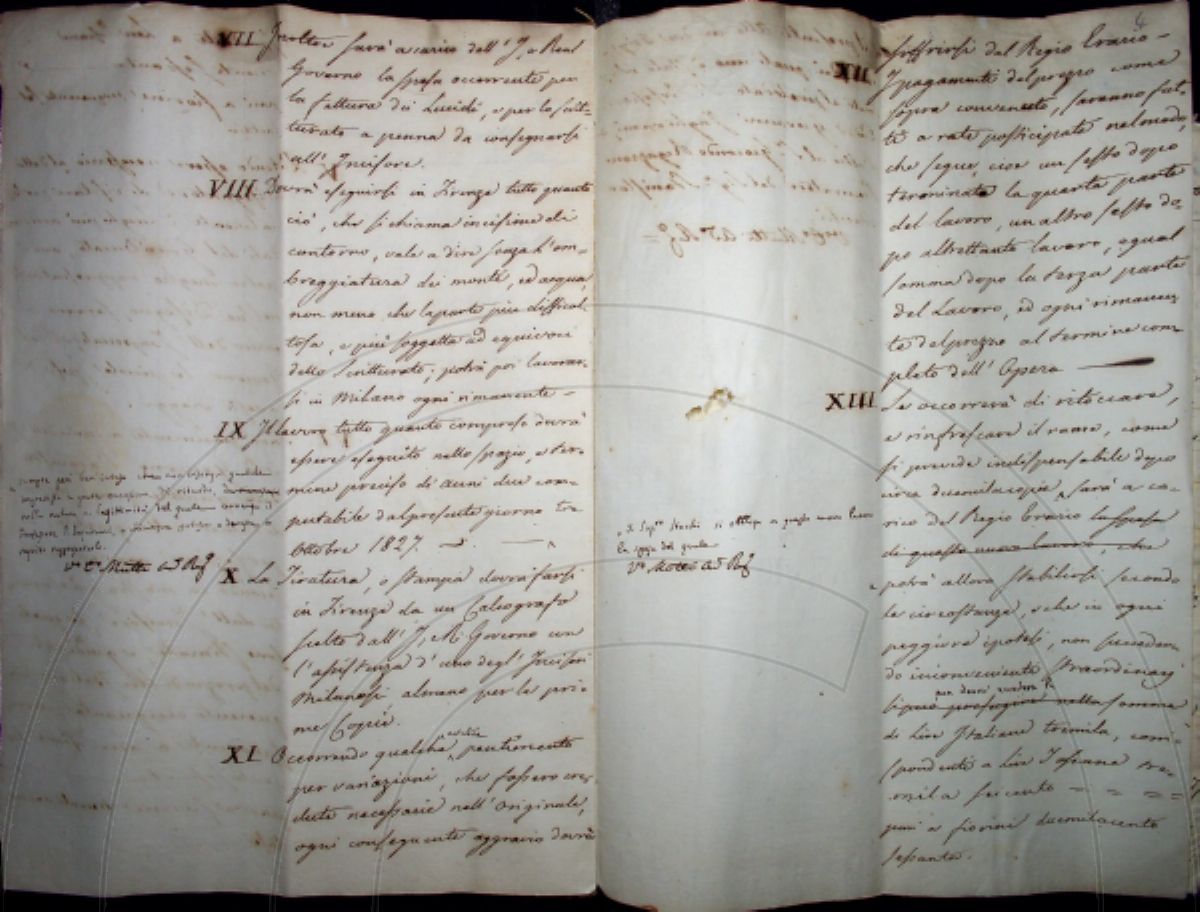 VII Inoltre sarà a carico dell' I. e Real
Governo la spesa occorrente per
la fattura dei Lucidi, e per lo scrit-
turato a penna da consegnarsi
all' Incisore.
VIII. Dovrà eseguirsi in Firenze tutto quanto
ciò, che si chiama incisione di
contorno, vale a dire senza l'om-
breggiatura dei monti, ed acqua,
non meno che la parte più difficol-
tosa, e più soggetta ad equivoci
dello Scritturato; potrà poi lavorar-
si in Milano ogni rimanente -
IX Il lavoro tutto quanto compreso dovrà
essere eseguito nello spazio, e ter-
mine preciso di anni due com-
putabile dal presente giorno tre
Ottobre 1827.
X La Tiratura, o stampa dovrà farsi
in Firenze da un Calcografo
scelto dall' I. R. Governo con
l'assistenza d'uno degl' Incisori
Milanesi almeno per le pri-
me Copie.
XI Occorrendo qualche pentimento
per variazioni, che fossero cre-
dute necessarie nell' Originale,
ogni conseguente aggravio dovrà
4
soffrirsi dal Regio Erario -
XII I pagamenti del prezzo come
sopra convenuto, saranno fat-
ti a rate posticipate nel modo,
che segue, cioè un sesto dopo
terminata la quarta parte
del lavoro, un altro sesto do-
po altrettanto lavoro, egual
somma dopo la terza parte
del Lavoro, ed ogni rimanen-
te del prezzo al termine com-
pleto dell' Opera
XIII Se occorrerà di ritoccare,
e rinfrescare il rame, come
si prevede indispensabile dopo
circa duemila copie, sarà a ca-
rico del Regio Erario la spesa
di questo nuovo lavoro, che
potrà allora stabilirsi secondo
le circostanze, e che in ogni
peggiore ipotesi, non succeden-
do inconvenienti straordinarj
non dovrà eccedere la
somma
di Lire Italiane tremila, corri-
spondenti a Lire Toscane tre-
mila seicento = = = =
pari a fiorini duemilacento
sessanta.
si obbliga a questo nuovo lavoro
la spesa del quale